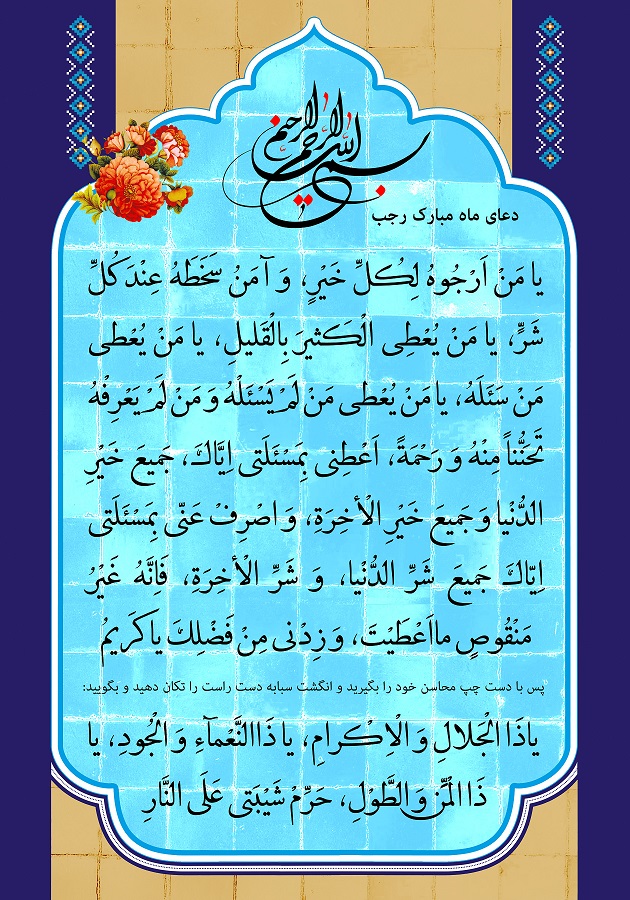 بسم الله الرحمن الرحیم
دعای ماه مبارک رجب
یا مَنْ اَرْجُوهُ لِکُلِّ خَیْرٍ، وَ آمَنُ سَخَطَهُ عِنْدَ کُلِّ
شَرٍّ، یا مَنْ یُعْطِی الْکَثیرَ بِالْقَلیلِ، یا مَنْ یُعْطی
مَنْ سَئَلَهُ، یا مَنْ یُعْطی مَنْ لَمْ یَسْئَلْهُ وَ مَنْ لَمْ یَعْرِفْهُ
تَحَنُّناً مِنْهُ وَ رَحْمَةً، اَعْطِنی بِمَسْئَلَتی اِیَّاکَ، جَمیعَ خَیْرِ
الدُّنْیا وَ جَمیعَ خَیْرِ الْأخِرَةِ، وَ اصْرِفْ عَنّی بِمَسْئَلَتی
اِیّاکَ جَمیعَ شَرِّ الدُّنْیا، وَ شَرِّ الْأخِرَةِ، فَاِنَّهُ غَیْرُ
مَنْقُوصٍ ما اَعْطَیْتَ، وَ زِدْنی مِنْ فَضْلِکَ یا کَریمُ
پس با دست چپ محاسن خود را بگیرید و انگشت سبابه دست راست را تکان دهید و بگویید:
یا ذَا الْجَلالِ وَ الْاِکْرامِ، یا ذَا النَّعْمآءِ وَ الْجُودِ، یا
ذَا الْمَنِّ وَ الطَّوْلِ، حَرِّمْ شَیْبَتی عَلَی النَّارِ